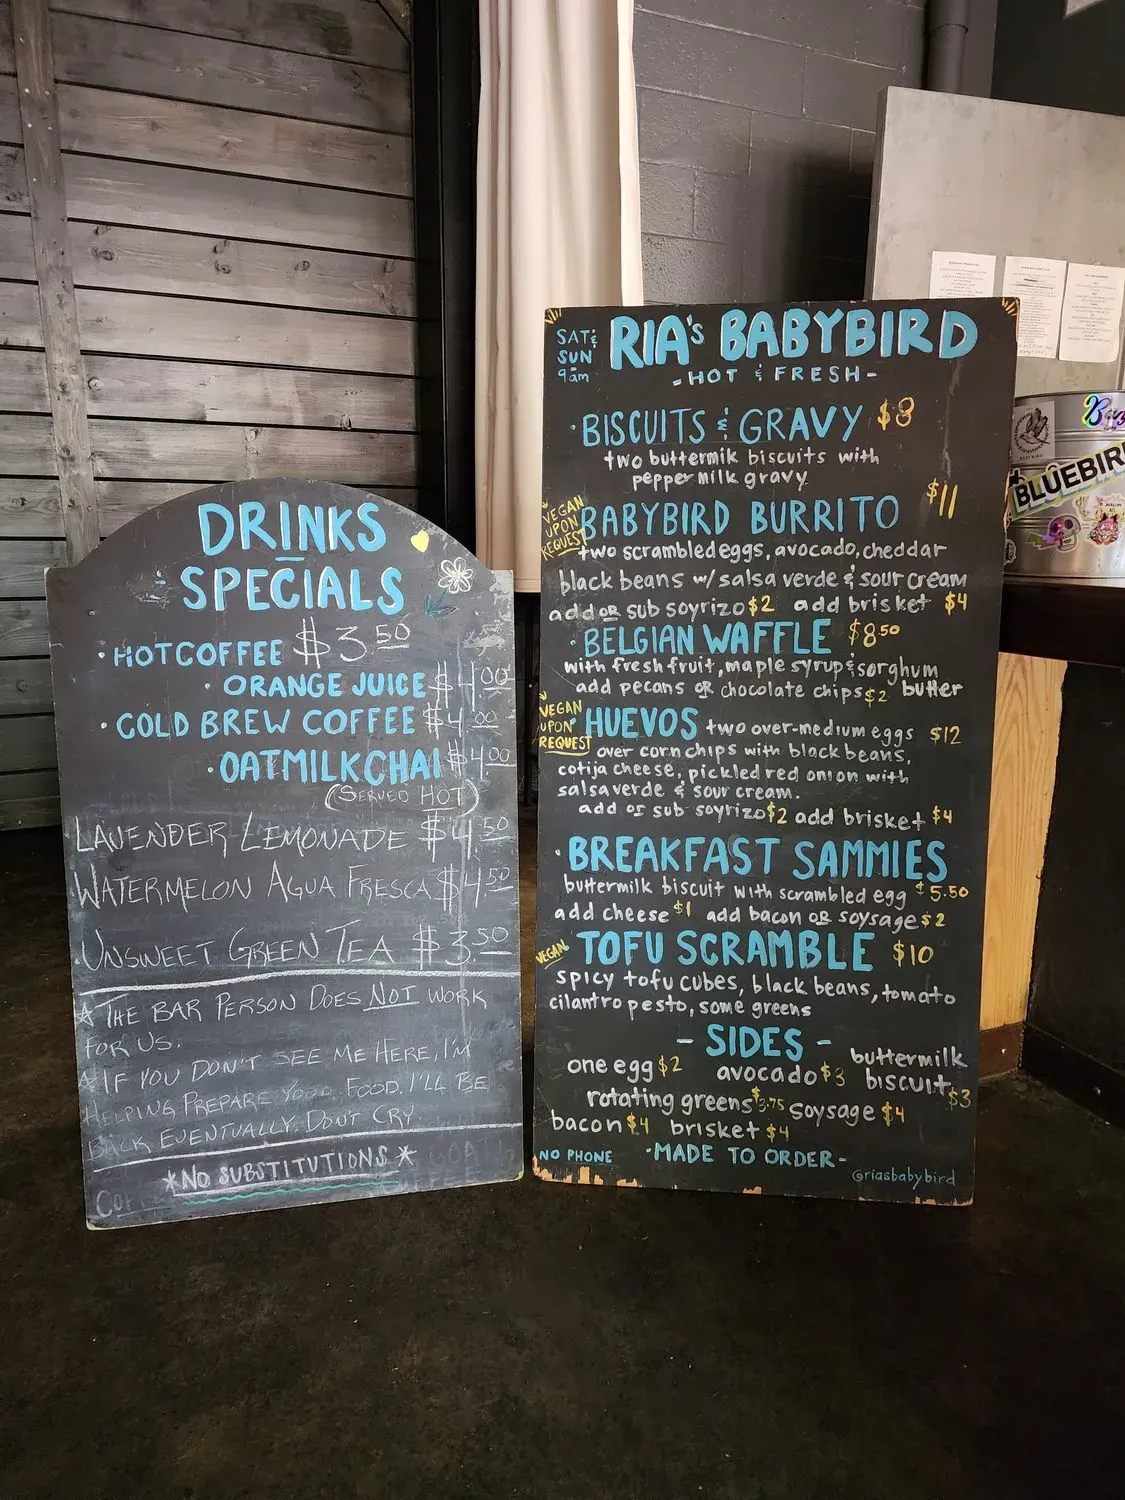 DRINKS
SPECIALS
· HOT COFFEE $3.50
· ORANGE JUICE $4.00
· COLD BREW COFFEE $4.00
· OATMILK CHAI $4.00
(SERVED HOT)
LAVENDER LEMONADE $4.50
WATERMELON AGUA FRESCA $4.50
· UNSWEET GREEN TEA $3.50
* THE BAR PERSON DOES NOT WORK
FOR US.
* IF YOU DON'T SEE ME HERE, I'M
HELPING PREPARE YOUR FOOD. I'LL BE
BACK EVENTUALLY. DON'T CRY.
*NO SUBSTITUTIONS*
SAT &
SUN
9am
RIA's BABYBIRD
- HOT & FRESH -
· BISCUITS & GRAVY $8
two buttermik biscuits with
pepper milk gravy
VEGAN
UPON
REQUEST
BABYBIRD BURRITO $11
two scrambled eggs, avocado, cheddar
black beans w/ salsa verde & sour cream
add or sub soyrizo $2 add brisket $4
BELGIAN WAFFLE $8.50
with fresh fruit, maple syrup & sorghum
add pecans or chocolate chips $2 butter
VEGAN
UPON
REQUEST
HUEVOS two over-medium eggs $12
over corn chips with black beans,
cotija cheese, pickled red onion with
salsa verde & sour cream.
add or sub soyrizo $2 add brisket $4
· BREAKFAST SAMMIES
buttermilk biscuit with scrambled egg $5.50
add cheese $1 add bacon or soysage $2
VEGAN
TOFU SCRAMBLE $10
spicy tofu cubes, black beans, tomato
cilantro pesto, some greens
- SIDES -
one egg $2 avocado $3 buttermilk
biscuit $3
rotating greens $3.75 soysage $4
bacon $4 brisket $4
NO PHONE - MADE TO ORDER -
@riasbabybird
BLUEBIR